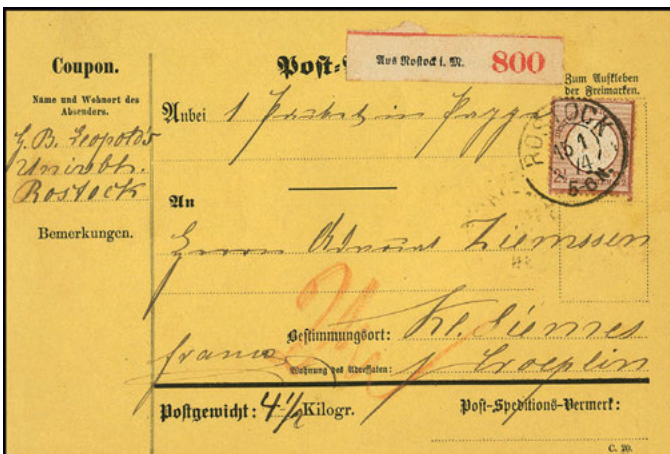 Coupon.
Name und Wohnort des
Absenders.
G. B. Leopold's
Univbh.
Rostock
Bemerkungen.
Post-
Aus Rostock i. M. 800
Zum Aufkleben
der Freimarken.
Anbei 1 Packet in Papp
ROSTOCK
15 1
74
5-6 N.
An
Herrn Advocat Ziemssen
Bestimmungsort:
franco
Wohnung des Adressaten:
Croeplin
Postgewicht: 4 1/2 Kilogr.
Post-Speditions-Vermerk:
C. 20.